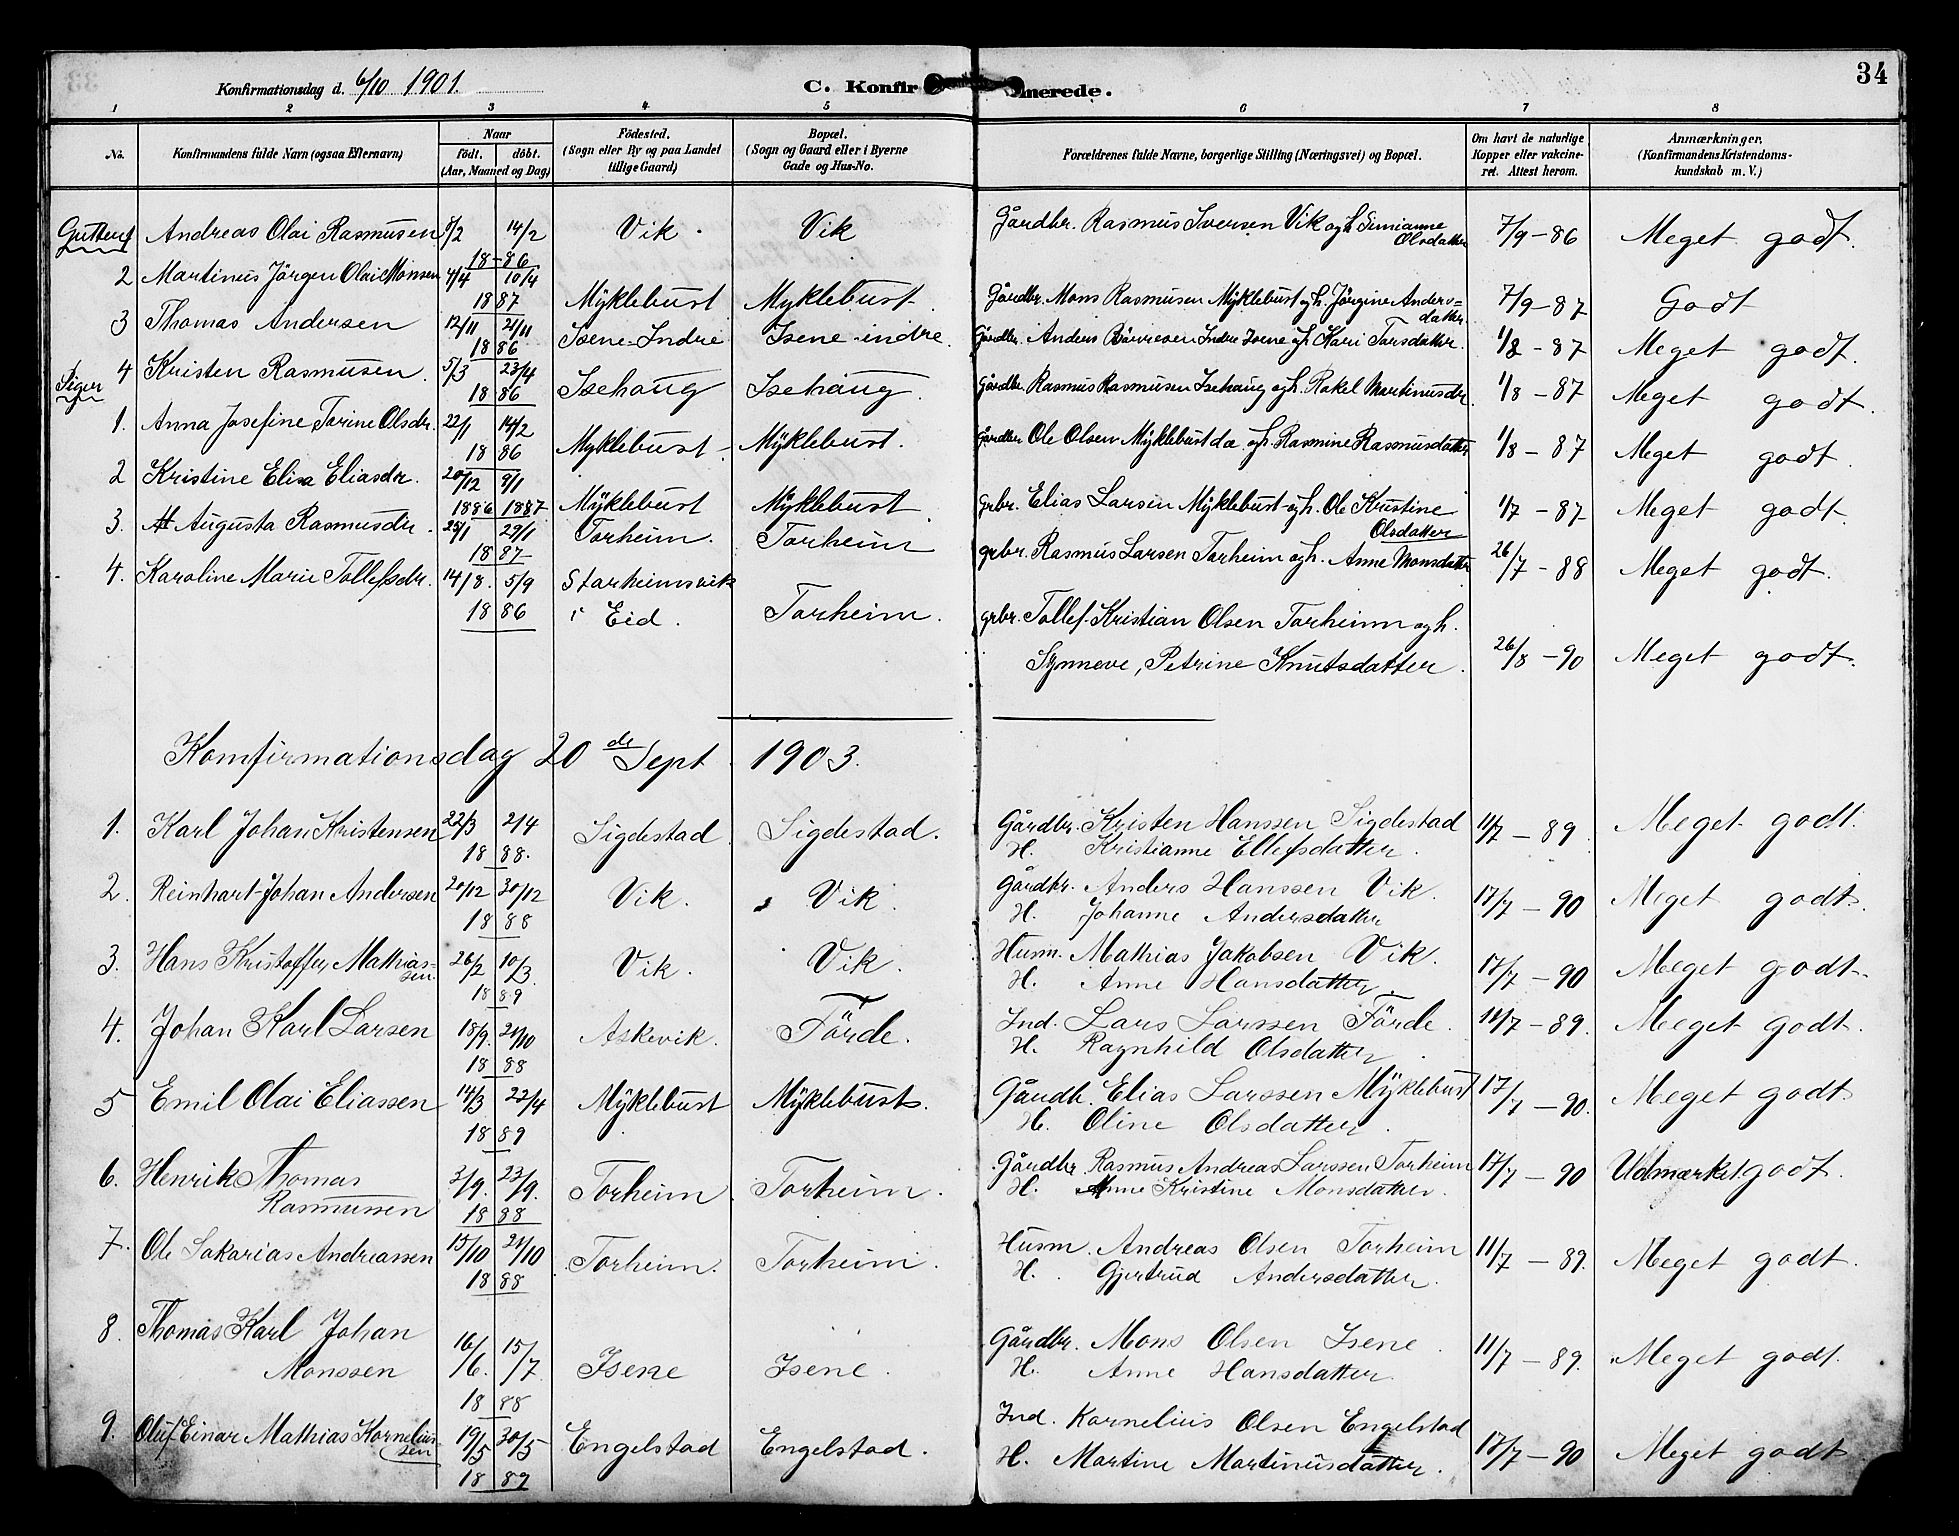 34
Konfirmationsdag d. 6/10 1901.
C. Konfirmerede.
1 2 3 4 5 6 7 8
No.
Konfirmandens fulde Navn (ogsaa Efternavn)
Naar
födt. döbt.
(Aar, Maaned og Dag)
Födested.
(Sogn eller By og paa Landet
tillige Gaard)
Bopæl.
(Sogn og Gaard eller i Byerne
Gade og Hus-No.
Forældrenes fulde Navne, borgerlige Stilling (Næringsvei) og Bopæl.
Om havt de naturlige
Kopper eller vakcine-
ret. Attest herom.
Anmærkninger.
(Konfirmandens Kristendoms-
kundskab m. V.)
Gutter
1 Andreas Olai Rasmusen 8/2 14/2 Vik. Vik Gårdbr. Rasmus Iversen Vik og h. Simianne 7/9-86 Meget godt.
18-86 Olsdatter
2 Martinus Jörgen Olai Monsen 4/4 10/4 Myklebust Myklebust. Gårdbr. Mons Rasmusen Myklebust og h. Jörgine Anders- 7/9-87 Godt
1887 datter
3 Thomas Andersen 12/11 21/11 Isene-Indre Isene-indre. Gårdbr. Anders Indre Isene og h. Kari Tarsdatter. 1/8-87 Meget godt.
1886
4 Kristen Rasmusen. 5/3 23/4 Isehaug Isehaug. Gårdbr. Rasmus Rasmusen Isehaug og h. Rakel Martinusdr. 1/8-87 Meget godt.
1886
Piger
1. Anna Josefine Torine Olsdr. 22/1 14/2 Myklebust- Myklebust. Gårdbr. Ole Olsen Myklebust da og h. Rasmine Rasmusdatter 1/8-87 Meget godt.
1886
2 Kristine Elisa Eliasdr. 20/12 9/1 Myklebust Myklebust. grbr. Elias Larsen Myklebust og h. Ole Kristine 1/7-87 Meget godt.
1886 1887 Olsdatter
3. Augusta Rasmusdr. 25/1 29/1 Torheim. Torheim grbr. Rasmus Larsen Torheim og h. Anne Monsdatter 26/7-88 Meget godt.
1887
4. Karoline Marie Tollefsdr. 14/8. 5/9 Starheimsvik
1886 i Eid. Torheim. grbr. Tollef Kristian Olsen Torheim og h.
Synneve, Petrine Knutsdatter. 26/8-90 Meget godt.
Komfirmationsdag 20de Sept 1903.
1. Karl Johan Kristensen 22/3 2/4 Sigdestad Sigdestad. Gårdbr. Kristen Hanssen Sigdestad 11/7-89 Meget godt.
1888. H. Kristianne Ellefsdatter.
2. Reinhart Johan Andersen 20/12 30/12 Vik. Vik. Gårdbr. Anders Hanssen Vik. 17/7-90 Meget godt.
1888 H. Johanne Andersdatter
3. Hans Kristoffer Mathias- 26/2 10/3 Vik. Vik. Husm. Mathias Jakobsen Vik. 17/7-90 Meget godt.
sen. 1889 H. Anne Hansdatter.
4. Johan Karl Larsen 18/9. 21/10 Askevik. Förde. Ind. Lars Larssen Förde. 11/7-89. Meget godt.
1888 H. Ragnhild Olsdatter.
5 Emil Olai Eliassen 14/3 22/4 Myklebust Myklebust. Gårdb. Elias Larssen Myklebust 17/7-90. Meget godt
1889 H. Oline Olsdatter.
6. Henrik Thomas 3/9. 23/9. Torheim Torheim. Gårdbr Rasmus Andreas Larssen Torheim 17/7-90 Udmærket godt.
Rasmussen 1888 H. Anne Kristine Monsdatter.
7. Ole Sakarias Andreassen 15/10 21/10 Torheim. Torheim. Husm. Andreas Olsen Torheim 11/7-89. Meget godt.
1888 H. Gjertrud Andersdatter.
8. Thomas Karl Johan Gårdbr. Mons Olsen Isene.
Monssen 16/6. 15/7. Isene Isene. H. Anne Hansdatter. 11/7-89. Meget godt.
1888
9. Oluf Einar Mathias Kornelius- 19/5 30/5 Engelstad Engelstad. Ind. Kornelius Olsen Engelstad 17/7-90 Meget godt
sen 1889 H. Martine Martinusdatter.